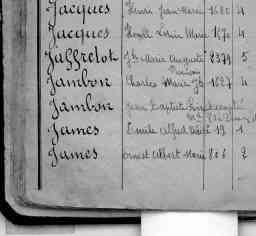 Jacques Henri Jean Marie 1680 4
Jacques Marie 1670 4
Jaffrelot Jh Marie Auguste 2379 5
Jambon Charles Marie Jh 1687 4
Jambon Jean Baptiste
James Emile Alfred 19 1
James Ernest Albert Marie 806 2